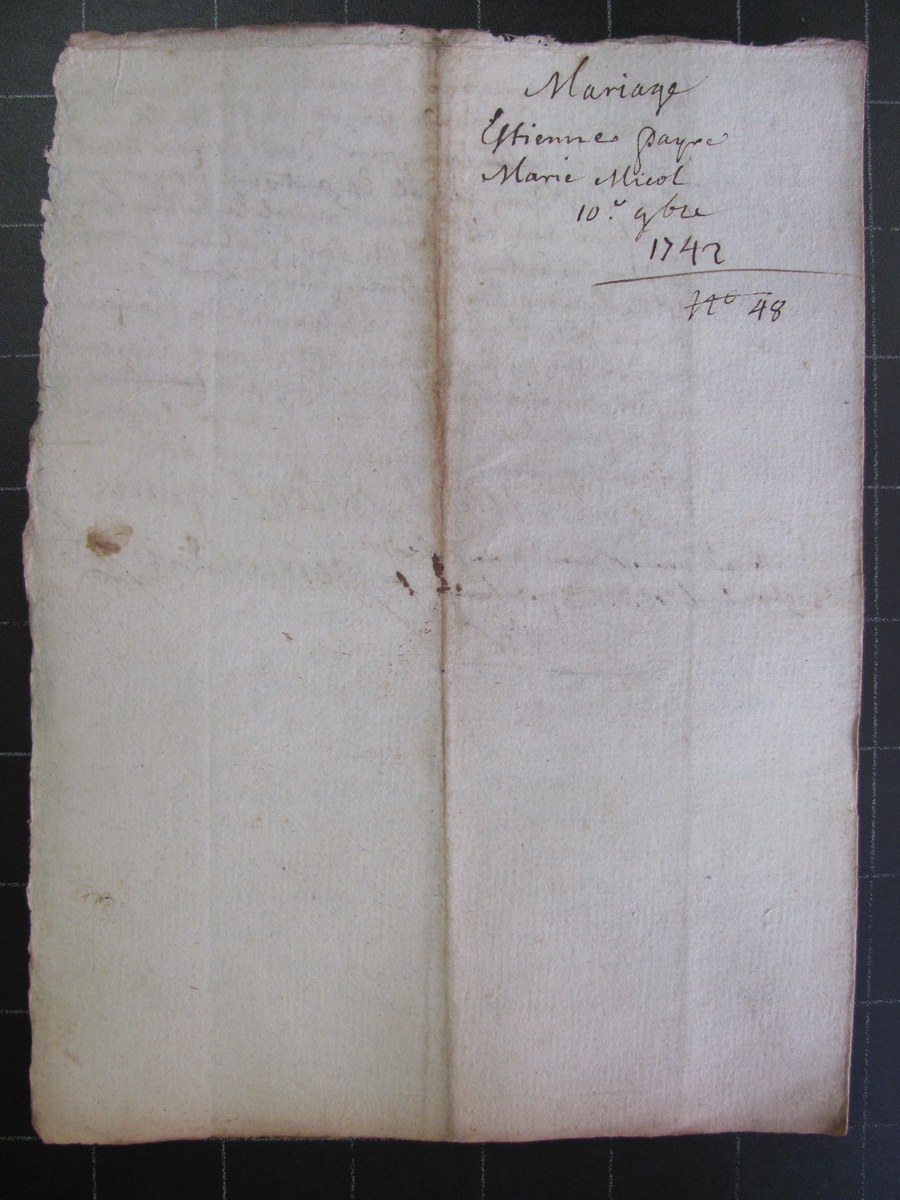 Mariage
Estienne payre
Marie Micol
10.e 9bre
1742
No 48